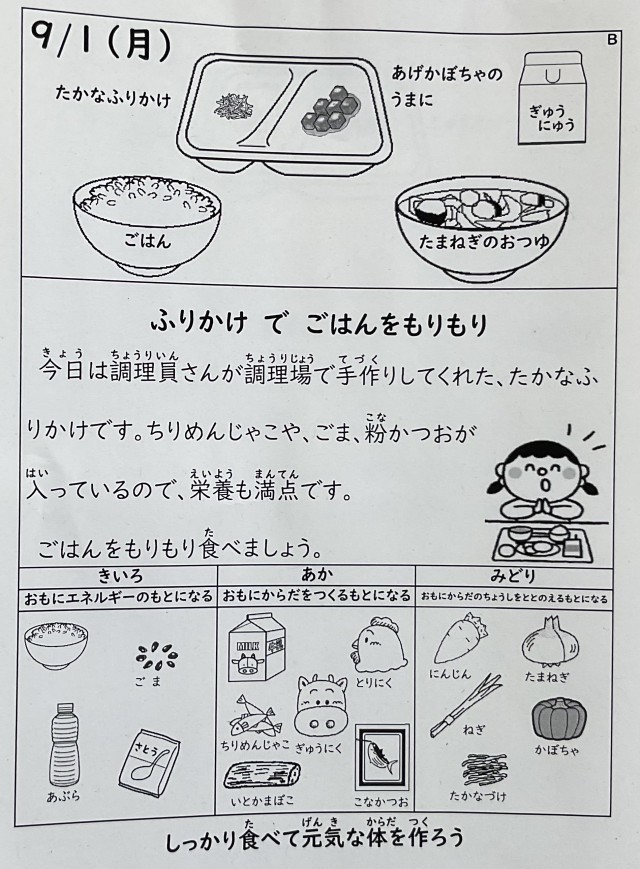 9/1(月)
B
たかなふりかけ
あげかぼちゃの
うまに
ぎゅう
にゅう
ごはん
たまねぎのおつゆ
ふりかけ で ごはんをもりもり
きょう ちょうりいん ちょうりじょう てづく
今日は調理員さんが調理場で手作りしてくれた、たかなふ
こな
りかけです。ちりめんじゃこや、ごま、粉かつおが
はい えいよう まんてん
入っているので、栄養も満点です。
た
ごはんをもりもり食べましょう。
きいろ
おもにエネルギーのもとになる
ごま
さとう
あぶら
あか
おもにからだをつくるもとになる
MILK
とりにく
ちりめんじゃこ
ぎゅうにく
いとかまぼこ
こなかつお
みどり
おもにからだのちょうしをととのえるもとになる
にんじん
たまねぎ
ねぎ
かぼちゃ
たかなづけ
た げんき からだ つく
しっかり食べて元気な体を作ろう